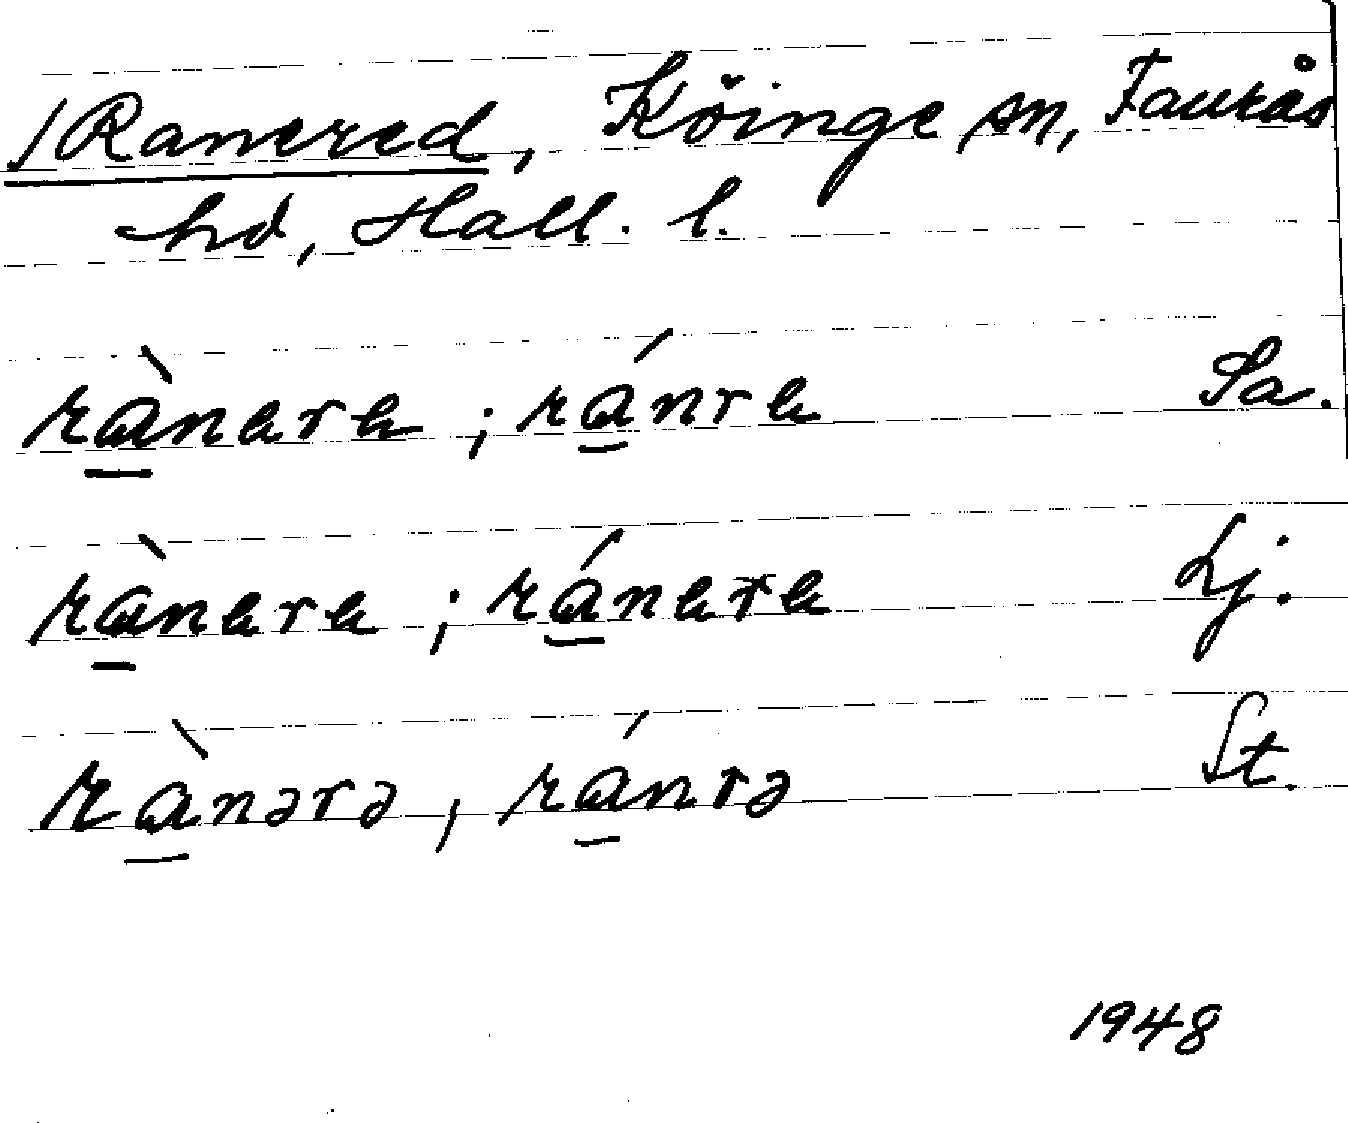 /Ranered, Köinge sn, Faurås
hd, Hall. l.
rànara ; ránra Sa.
rànara ; ránara Lj.
rànərə, ránrə St.
1948